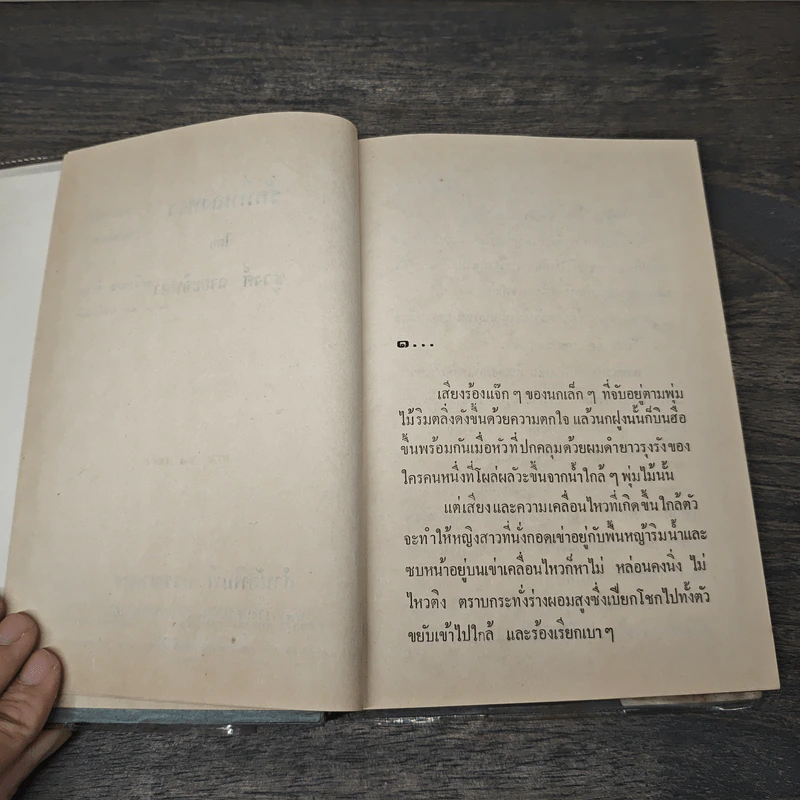 ๑...
เสียงร้องแจ๊ก ๆ ของนกเล็ก ๆ ที่จับอยู่ตามพุ่ม
ไม้ริมตลิ่งดังขึ้นด้วยความตกใจ แล้วนกฝูงนั้นก็บินฮือ
ขึ้นพร้อมกันเมื่อหัวที่ปกคลุมด้วยผมดำยาวรุงรังของ
ใครคนหนึ่งที่โผล่ผลัวะขึ้นจากน้ำใกล้ ๆ พุ่มไม้นั้น
แต่เสียงและความเคลื่อนไหวที่เกิดขึ้นใกล้ตัว
จะทำให้หญิงสาวที่นั่งกอดเข่าอยู่กับพื้นหญ้าริมน้ำและ
ซบหน้าอยู่บนเข่าเคลื่อนไหวก็หาไม่ หล่อนคงนิ่ง ไม่
ไหวติง ตราบกระทั่งร่างผอมสูงซึ่งเปียกโชกไปทั้งตัว
ขยับเข้าไปใกล้ และร้องเรียกเบา ๆ